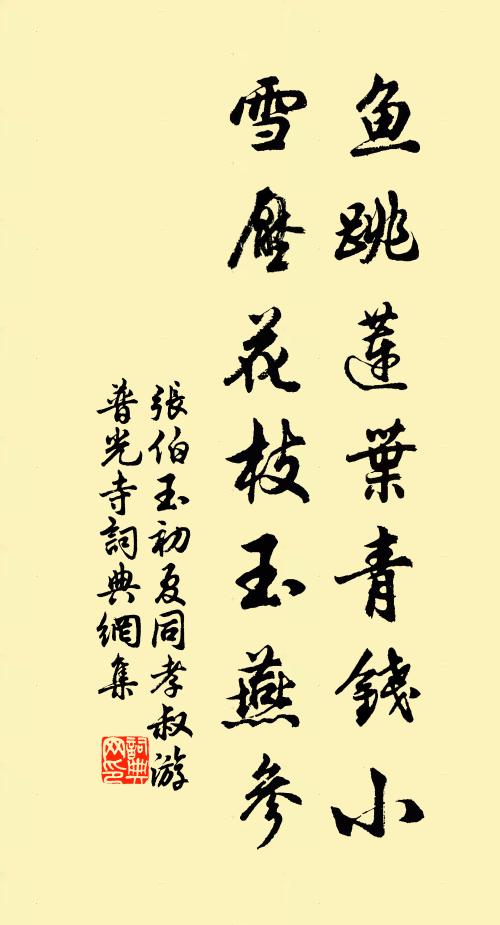 鱼跳莲葉青錢小
雪壓花枝玉燕參
張伯玉初夏同孝叔游
普光寺詞典網集
詞典
网印